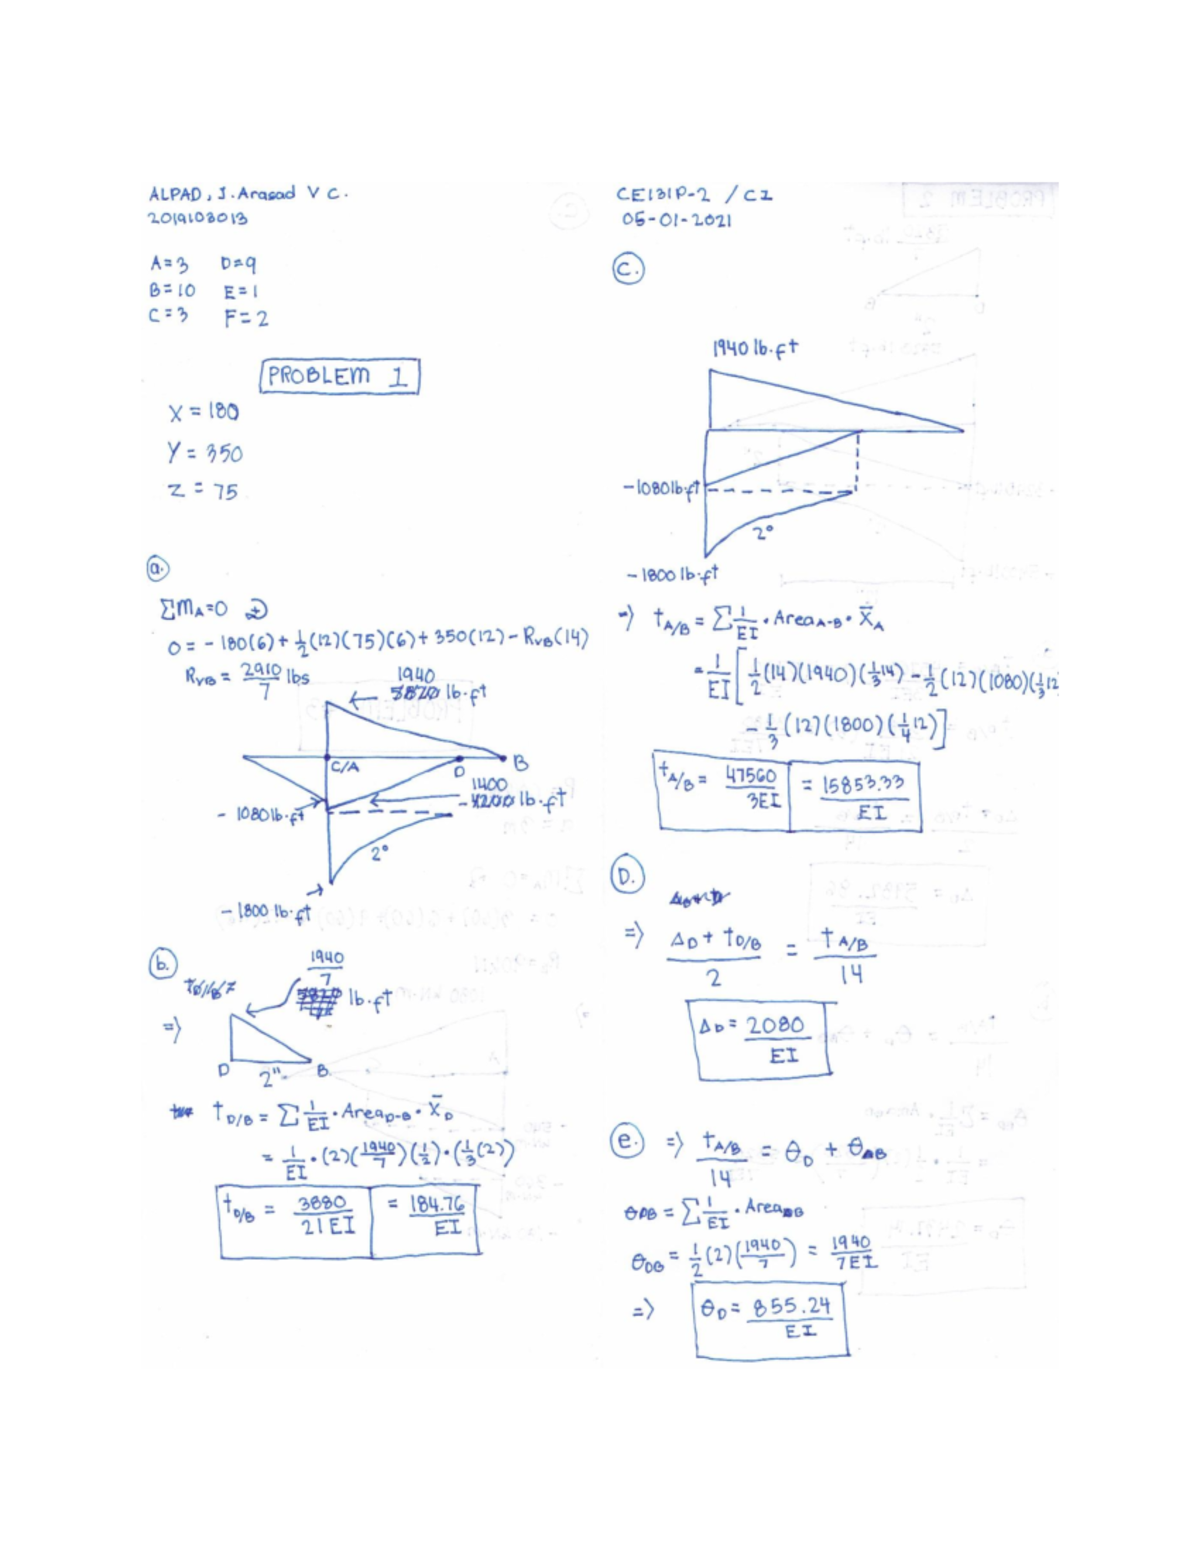 ALPAD, J. Arasad V C.
2019103013
A=3 D=9
B=10 E=1
C=3 F=2
PROBLEM 1
X = 180
Y = 350
Z = 75
a.
ΣMA=0
0 = - 180(6) + 1/2 (12)(75)(6) + 350(12) - RVB(14)
RVB = 2910/7 lbs
1940
5820 lb·ft
C/A D B
1400
- 4200 lb·ft
- 1080 lb·ft
2°
- 1800 lb·ft
b.
tD/B =
1940/7
lb·ft
=>
D 2" B
tD/B = Σ 1/EI · AreaD-B · X̄D
= 1/EI · (2)(1940/7)(1/2) · (1/3(2))
tD/B = 3880/21EI = 184.76/EI
CE131P-2 / C1
05-01-2021
C.
1940 lb·ft
-1080 lb·ft
2°
- 1800 lb·ft
=> tA/B = Σ 1/EI · AreaA-B · X̄A
= 1/EI [ 1/2 (14)(1940)(1/3 14) - 1/2 (12)(1080)(1/3 12
- 1/3 (12)(1800)(1/4 12)]
tA/B = 47560/3EI = 15853.33/EI
D.
=> ΔD + tD/B / 2 = tA/B / 14
ΔD = 2080/EI
e. => tA/B / 14 = θD + θDB
θDB = Σ 1/EI · AreaDB
θDB = 1/2 (2)(1940/7) = 1940/7EI
=> θD = 855.24/EI